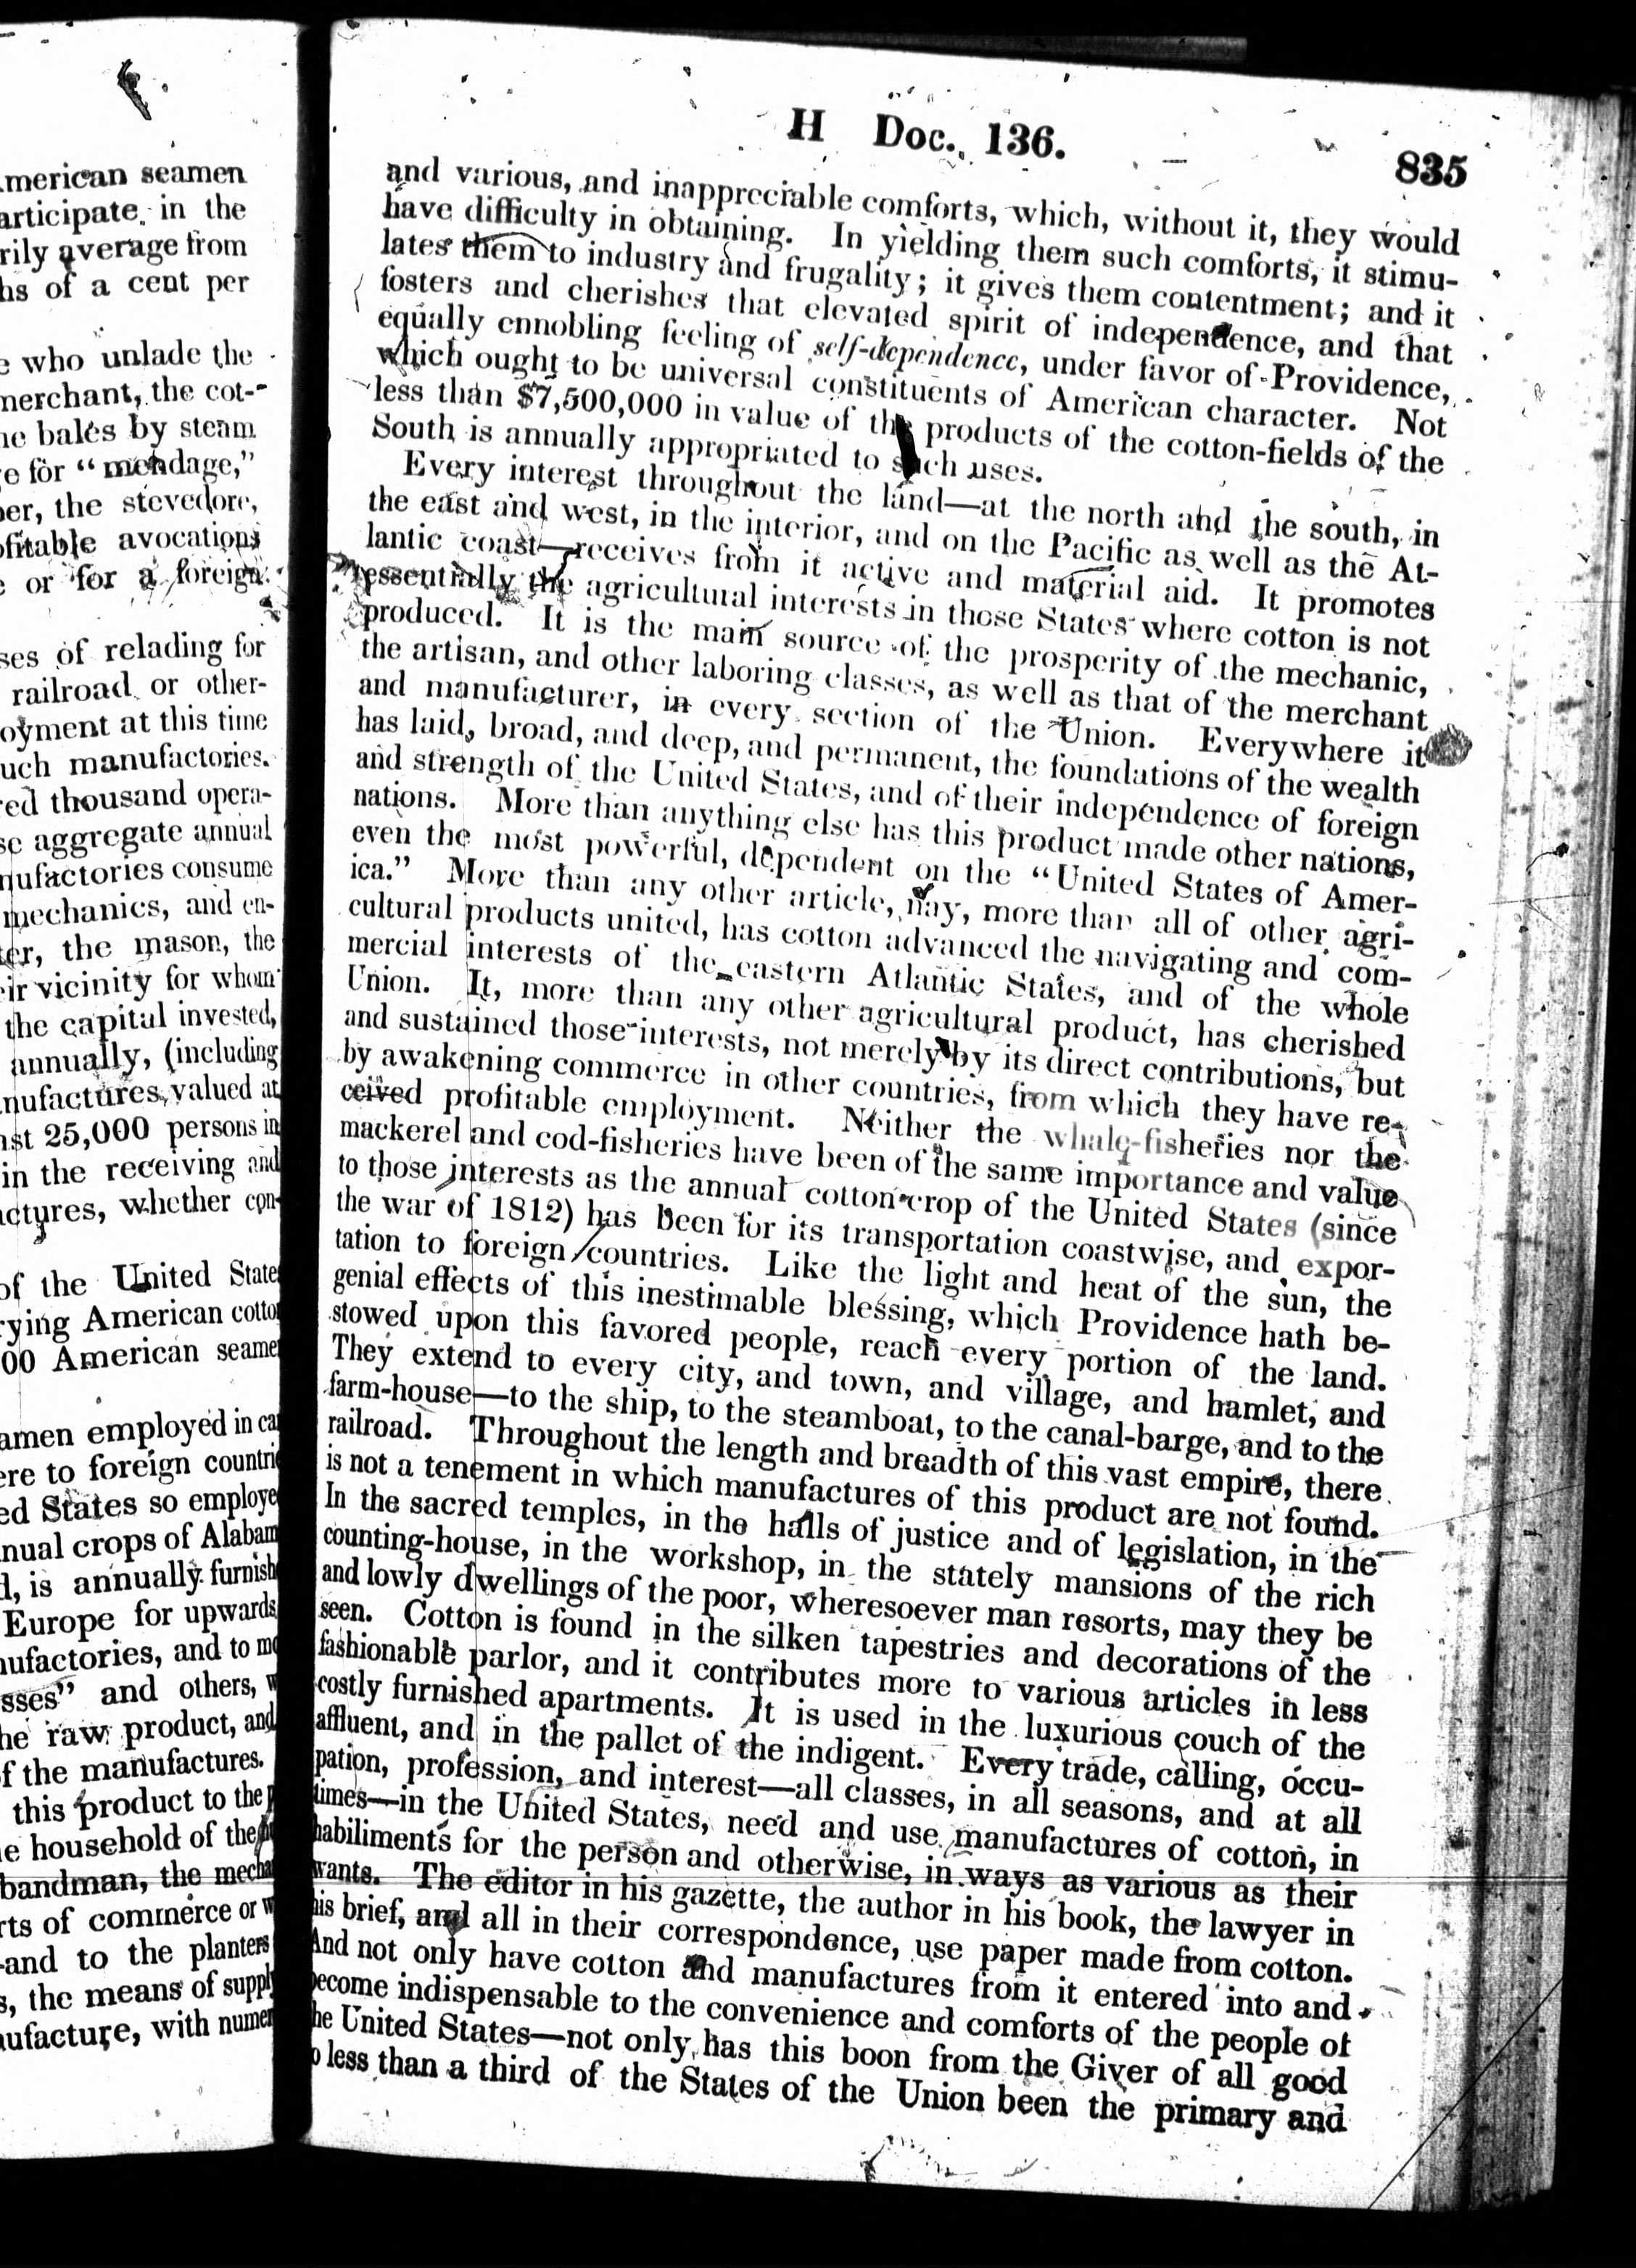 American seamen
articipate in the
rily average from
hs of a cent per
e who unlade the
merchant, the cot-
he bales by steam
ge for "mendage,"
per, the stevedore,
ofitable avocations
e or for a foreign
ses of relading for
railroad or other-
oyment at this time
uch manufactories.
red thousand opera-
se aggregate annual
nufactories consume
mechanics, and en-
ter, the mason, the
eir vicinity for whom
the capital invested,
annually, (including
nufactures, valued at
nst 25,000 persons in
in the receiving and
actures, whether con-
of the United State
rying American cotto
00 American seame
amen employed in ca
ere to foreign countri
ed States so employe
nual crops of Alabam
d, is annually furnish
Europe for upwards
nufactories, and to mo
sses" and others, w
he raw product, and
f the manufactures.
this product to the p
e household of the
bandman, the mecha
rts of commerce or w
-and to the planters
s, the means of supply
nufacture, with numer
H Doc. 136.
835
and various, and inappreciable comforts, which, without it, they would
have difficulty in obtaining. In yielding them such comforts, it stimu-
lates them to industry and frugality; it gives them contentment; and it
fosters and cherishes that elevated spirit of independence, and that
equally ennobling feeling of self-dependence, under favor of Providence,
which ought to be universal constituents of American character. Not
less than $7,500,000 in value of the products of the cotton-fields of the
South is annually appropriated to such uses.
Every interest throughout the land—at the north and the south, in
the east and west, in the interior, and on the Pacific as well as the At-
lantic coast—receives from it active and material aid. It promotes
essentially the agricultural interests in those States where cotton is not
produced. It is the main source of the prosperity of the mechanic,
the artisan, and other laboring classes, as well as that of the merchant
and manufacturer, in every section of the Union. Everywhere it
has laid, broad, and deep, and permanent, the foundations of the wealth
and strength of the United States, and of their independence of foreign
nations. More than anything else has this product made other nations,
even the most powerful, dependent on the "United States of Amer-
ica." More than any other article, nay, more than all of other agri-
cultural products united, has cotton advanced the navigating and com-
mercial interests of the eastern Atlantic States, and of the whole
Union. It, more than any other agricultural product, has cherished
and sustained those interests, not merely by its direct contributions, but
by awakening commerce in other countries, from which they have re-
ceived profitable employment. Neither the whale-fisheries nor the
mackerel and cod-fisheries have been of the same importance and value
to those interests as the annual cotton-crop of the United States (since
the war of 1812) has been for its transportation coastwise, and expor-
tation to foreign countries. Like the light and heat of the sun, the
genial effects of this inestimable blessing, which Providence hath be-
stowed upon this favored people, reach every portion of the land.
They extend to every city, and town, and village, and hamlet, and
farm-house—to the ship, to the steamboat, to the canal-barge, and to the
railroad. Throughout the length and breadth of this vast empire, there
is not a tenement in which manufactures of this product are not found.
In the sacred temples, in the halls of justice and of legislation, in the
counting-house, in the workshop, in the stately mansions of the rich
and lowly dwellings of the poor, wheresoever man resorts, may they be
seen. Cotton is found in the silken tapestries and decorations of the
fashionable parlor, and it contributes more to various articles in less
costly furnished apartments. It is used in the luxurious couch of the
affluent, and in the pallet of the indigent. Every trade, calling, occu-
pation, profession, and interest—all classes, in all seasons, and at all
times—in the United States, need and use manufactures of cotton, in
habiliments for the person and otherwise, in ways as various as their
wants. The editor in his gazette, the author in his book, the lawyer in
his brief, and all in their correspondence, use paper made from cotton.
And not only have cotton and manufactures from it entered into and
become indispensable to the convenience and comforts of the people of
the United States—not only has this boon from the Giver of all good
o less than a third of the States of the Union been the primary and